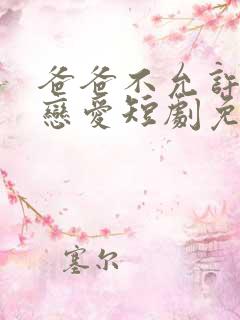 爸爸不允許
戀愛短劇免
塞尔